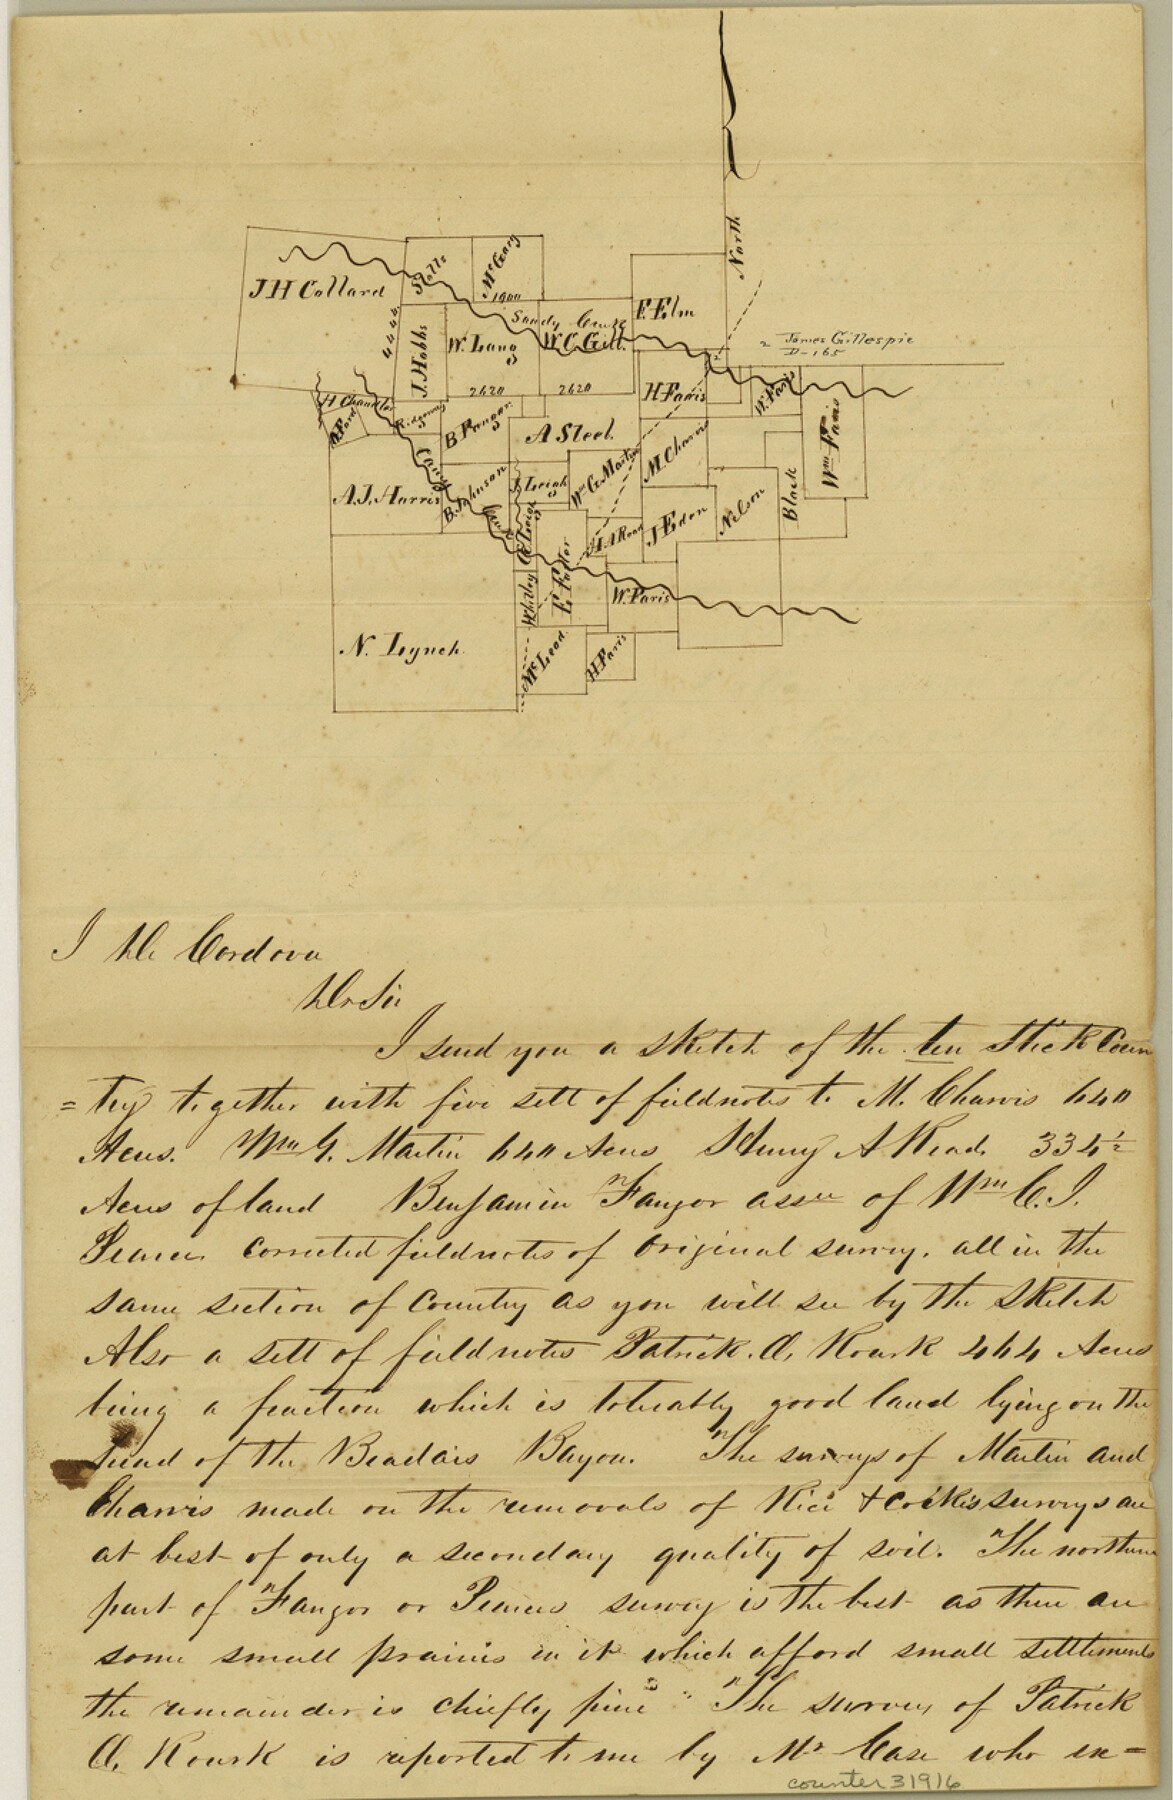 North
J H Collard
Stills
McGary
1900
Sandy Creek
F. Elm
4444
J. Hobbs
W. Lang
W. C. Gill.
2 James Gillespie
D-165
2620
2620
H Faris
W. Faris
Wm Faris
H Chandler
A. Ford
Ridgeway
B. Fangor
A Steel.
M. Charvis
Wm G. Martin
A. J. Harris
Caney
B. Johnson
J. Leigh
Creek
Leigh
A A Read
J Edon
Nelson
Black
Whitley
E. Fuller
W. Faris
N. Lynch
McLeod
H Faris
J De Cordova
Dr Sir
I send you a sketch of the ten Stick Coun
=try together with five sett of fieldnotes to M. Charvis 640
Acres. Wm G. Martin 640 Acres Henry A Read. 334 1/2
Acres of land Benjamin Fangor assee of Wm C. J.
Pearce corrected fieldnotes of original survey. all in the
same section of Country as you will see by the sketch
Also a sett of fieldnotes Patrick. O, Rourk 464 Acres
being a fraction which is tolerably good land lying on the
head of the Beadais Bayou. The surveys of Martin and
Charvis made on the removals of Rice & Cockes surveys are
at best of only a secondary quality of soil. The northern
part of Fangor or Pearces survey is the best as there are
some small prairies in it which afford small settlements
the remainder is chiefly pine " The survey of Patrick
O, Rourk is reported to me by Mr Case who ex=
counter 31916